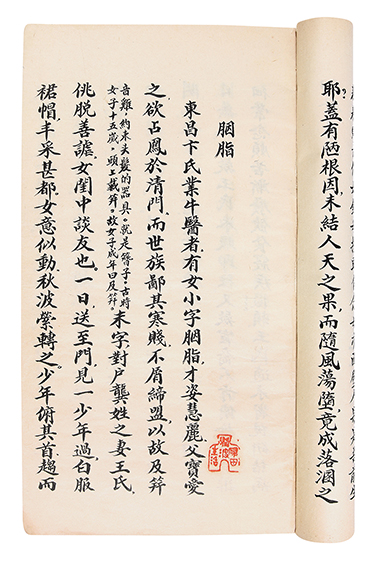 耶?蓋有陋根因,未結人天之果,而隨風蕩墮,竟成落溷之
胭脂
東昌卞氏業牛醫者,有女小字胭脂,才姿慧麗,父寶愛
之,欲占鳳於清門,而世族鄙其寒賤,不屑締盟,以故及笄
音雞,約束头髮的器具。就是簪子。古時
女子十五歲,頭上戴笄。故女子成年曰及笄。
未字,對戶龔姓之妻王氏,
佻脱善謔,女閨中談友也。一日,送至門,見一少年過,白服
裙帽,丰采甚都,女意似動,秋波縈轉之。少年俯其首,趨而